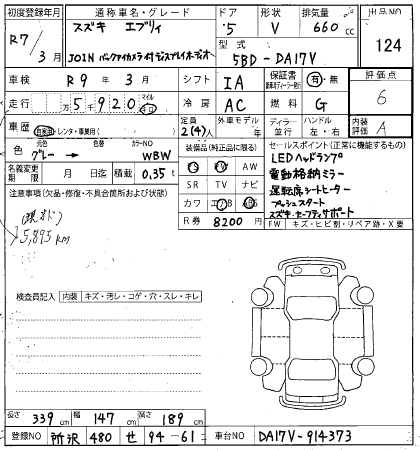 初度登録年月 通称車名・グレード ドア 形状 排気量 出品NO
R7/3月 スズキ エブリィ 5 V 660cc 124
JOIN バックアイカメラ付ディスプレイオーディオ 型式 5BD-DA17V
車検 R9年3月 シフト IA 保証書 有・無 評価点
走行 万5千920 マイル キロ 冷房 AC 燃料 G 6
車歴 自家用・レンタ・事業用( ) 定員 2(4)人 外車モデル 年 ディーラー 並行 ハンドル 左・右 内装評価 A
色 元色 グレー → 色替 カラーNO WBW 装備品(純正品に限る) セールスポイント(正常に機能するもの)
名義変更期限 月 日迄 積載 0,35t
PS PW AW
SR TV ナビ
カワ エアB ABS
R券 8200円
LEDヘッドランプ
電動格納ミラー
運転席シートヒーター
プッシュスタート
スズキセーフティサポート
FW キズ・ヒビ割・リペア跡・X要
注意事項(欠品・修復・不具合箇所および状態)
5,895km
検査員記入 内装 キズ・汚レ・コゲ・穴・スレ・キレ
長さ 339cm 幅 147cm 高さ 189cm
登録NO 所沢 480 せ 94-61 車台NO DA17V-914373